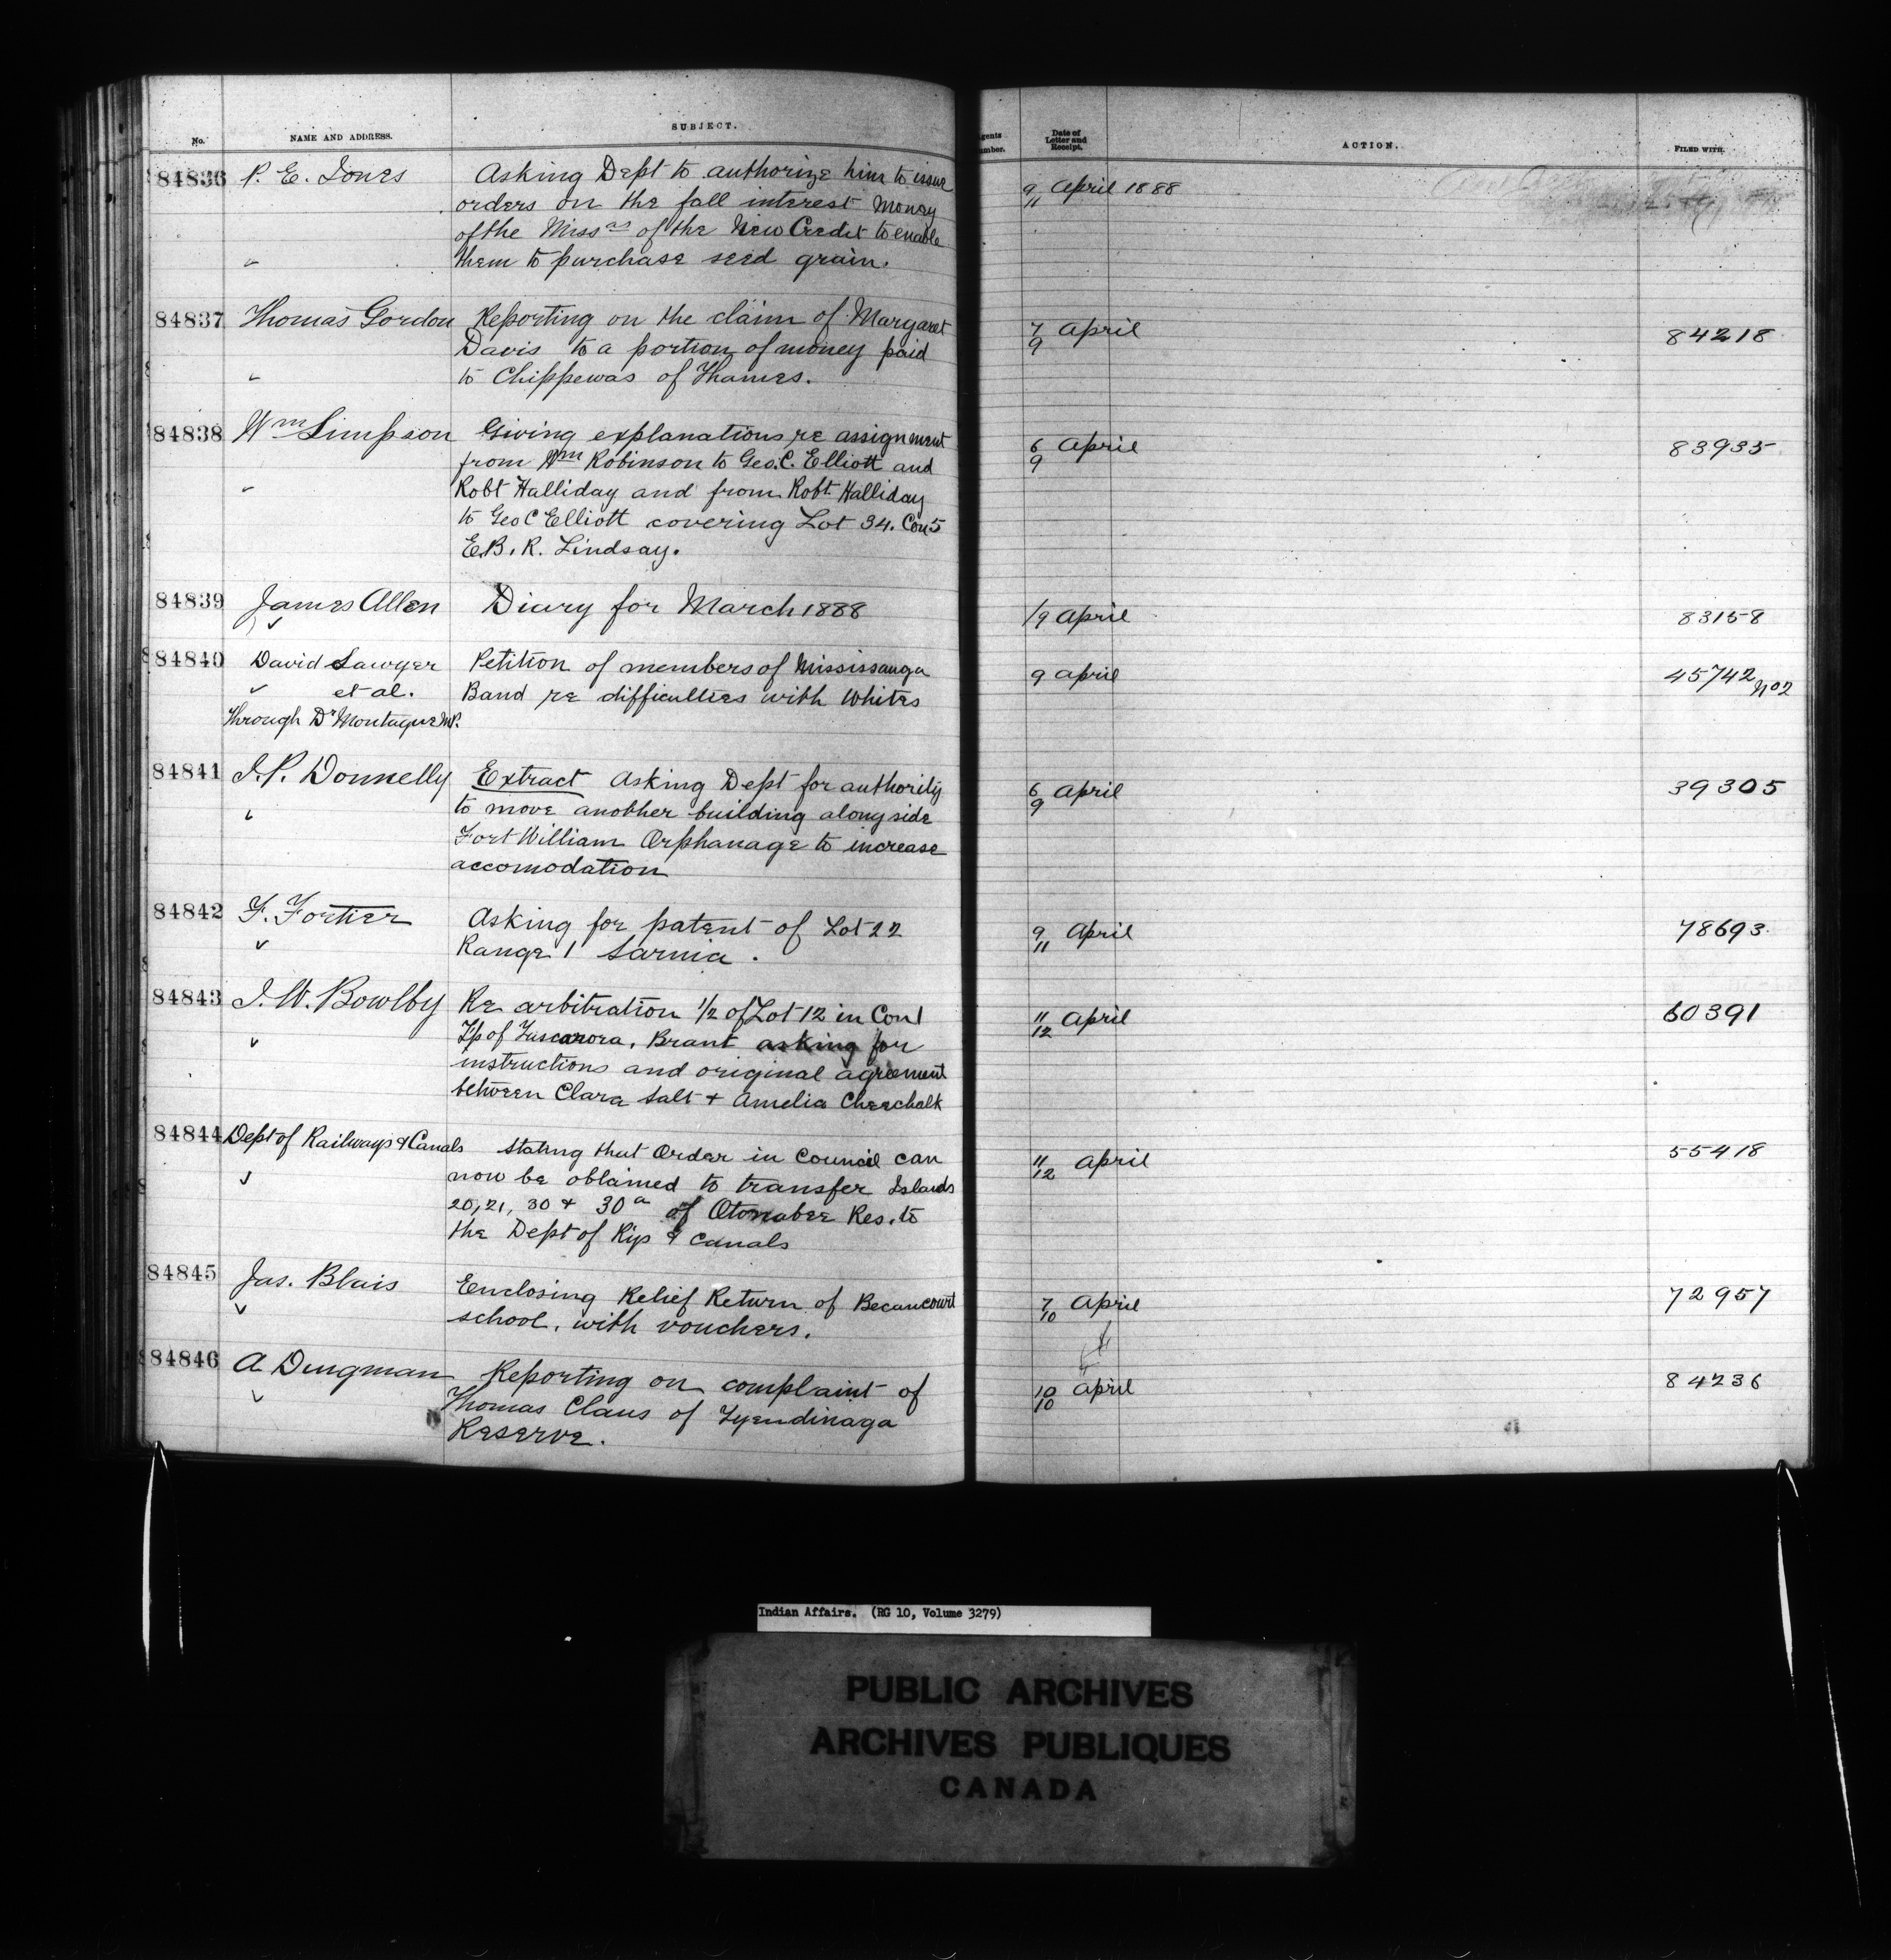 No.
NAME AND ADDRESS.
SUBJECT.
Agents
Number.
Date of
Letter and
Receipt.
ACTION.
FILED WITH.
84836
P. E. Jones
Asking Dept to authorize him to issue
orders on the fall interest money
of the Missas of the New Credit to enable
them to purchase seed grain.
9/11 April 1888
84837
Thomas Gordon
Reporting on the claim of Margaret
Davis to a portion of money paid
to Chippewas of Thames.
7/9 April
84218
84838
Wm Simpson
Giving explanations re assignment
from Wm Robinson to Geo. C. Elliott and
Robt Halliday and from Robt Halliday
to Geo C Elliott covering Lot 34. Con 5
E.B.R. Lindsay.
6/9 April
83935
84839
James Allen
Diary for March 1888
/9 April
83158
84840
David Sawyer
et al.
Through Dr Montague M.P.
Petition of members of Mississauga
Band re difficulties with Whites
9 April
45742 No 2
84841
J. P. Donnelly
Extract Asking Dept for authority
to move another building alongside
Fort William Orphanage to increase
accomodation
6/9 April
39305
84842
F. Fortier
Asking for patent of Lot 22
Range 1 Sarnia.
9/11 April
78693
84843
J. W. Bowlby
Re arbitration 1/2 of Lot 12 in Con 1
Tp of Tuscarora, Brant asking for
instructions and original agreement
between Clara Salt + Amelia Cheechalk
11/12 April
60391
84844
Dept of Railways & Canals
Stating that Order in Council can
now be obtained to transfer Islands
20, 21, 30 + 30a of Otonabee Res. to
the Dept of Rys & Canals
11/12 April
55418
84845
Jas. Blais
Eenclosing Relief Return of Becancourt
school, with vouchers.
7/10 April
72957
84846
A Dingman
Reporting on complaint of
Thomas Claus of Tyendinaga
Reserve.
10/10 April
84236
Indian Affairs. (RG 10, Volume 3279)
PUBLIC ARCHIVES
ARCHIVES PUBLIQUES
CANADA